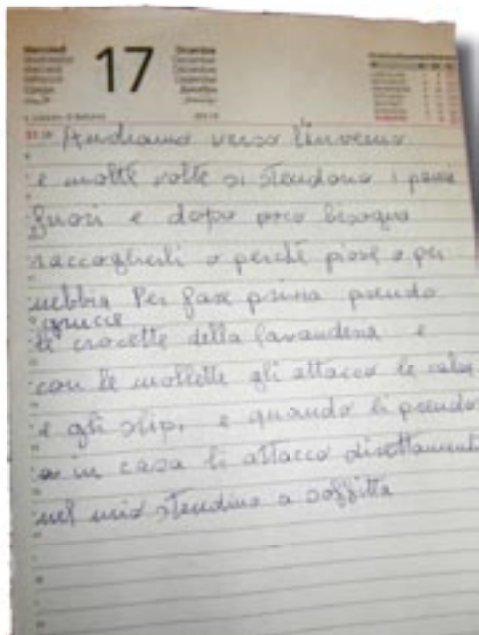 Mercoledì
17
Dicembre
Andiamo verso l'inverno
e molte volte si stendono i panni
fuori e dopo poco bisogna
raccoglierli o perché piove o per
nebbia Per fare prima prendo
grucce
le crocette della lavanderia e
con le mollette gli attacco le calze
e gli slip, e quando li prendo
in casa li attacco direttamente
nel mio stendino a soffitta